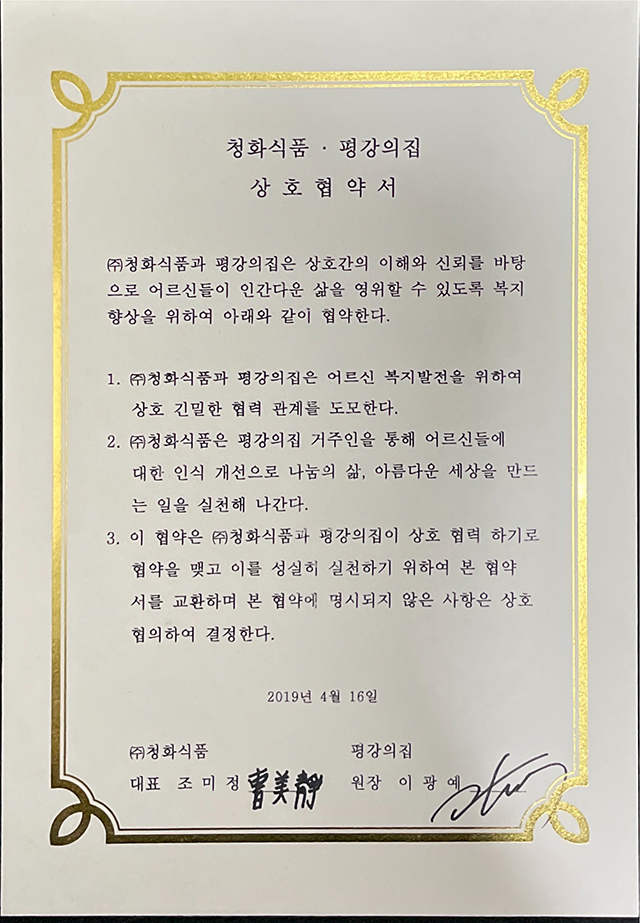 청화식품 · 평강의집
상호협약서
㈜청화식품과 평강의집은 상호간의 이해와 신뢰를 바탕
으로 어르신들이 인간다운 삶을 영위할 수 있도록 복지
향상을 위하여 아래와 같이 협약한다.
1. ㈜청화식품과 평강의집은 어르신 복지발전을 위하여
상호 긴밀한 협력 관계를 도모한다.
2. ㈜청화식품은 평강의집 거주인을 통해 어르신들에
대한 인식 개선으로 나눔의 삶, 아름다운 세상을 만드
는 일을 실천해 나간다.
3. 이 협약은 ㈜청화식품과 평강의집이 상호 협력 하기로
협약을 맺고 이를 성실히 실천하기 위하여 본 협약
서를 교환하며 본 협약에 명시되지 않은 사항은 상호
협의하여 결정한다.
2019년 4월 16일
㈜청화식품 평강의집
대표 조미정 曺美靜 원장 이광예